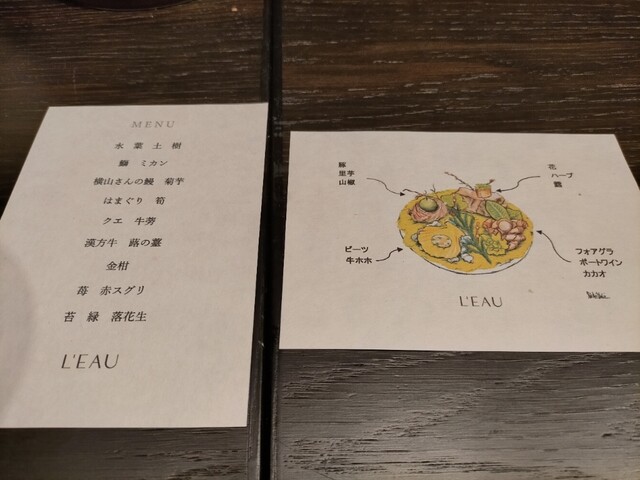 MENU
水 葉 土 樹
鰤 ミカン
横山さんの鰻 菊芋
はまぐり 筍
クエ 牛蒡
漢方牛 蕗の薹
金柑
苺 赤スグリ
苔 緑 落花生
L'EAU
豚
里芋
山椒
花
ハーブ
ビーツ
牛ホホ
フォアグラ
ポートワイン
カカオ
L'EAU